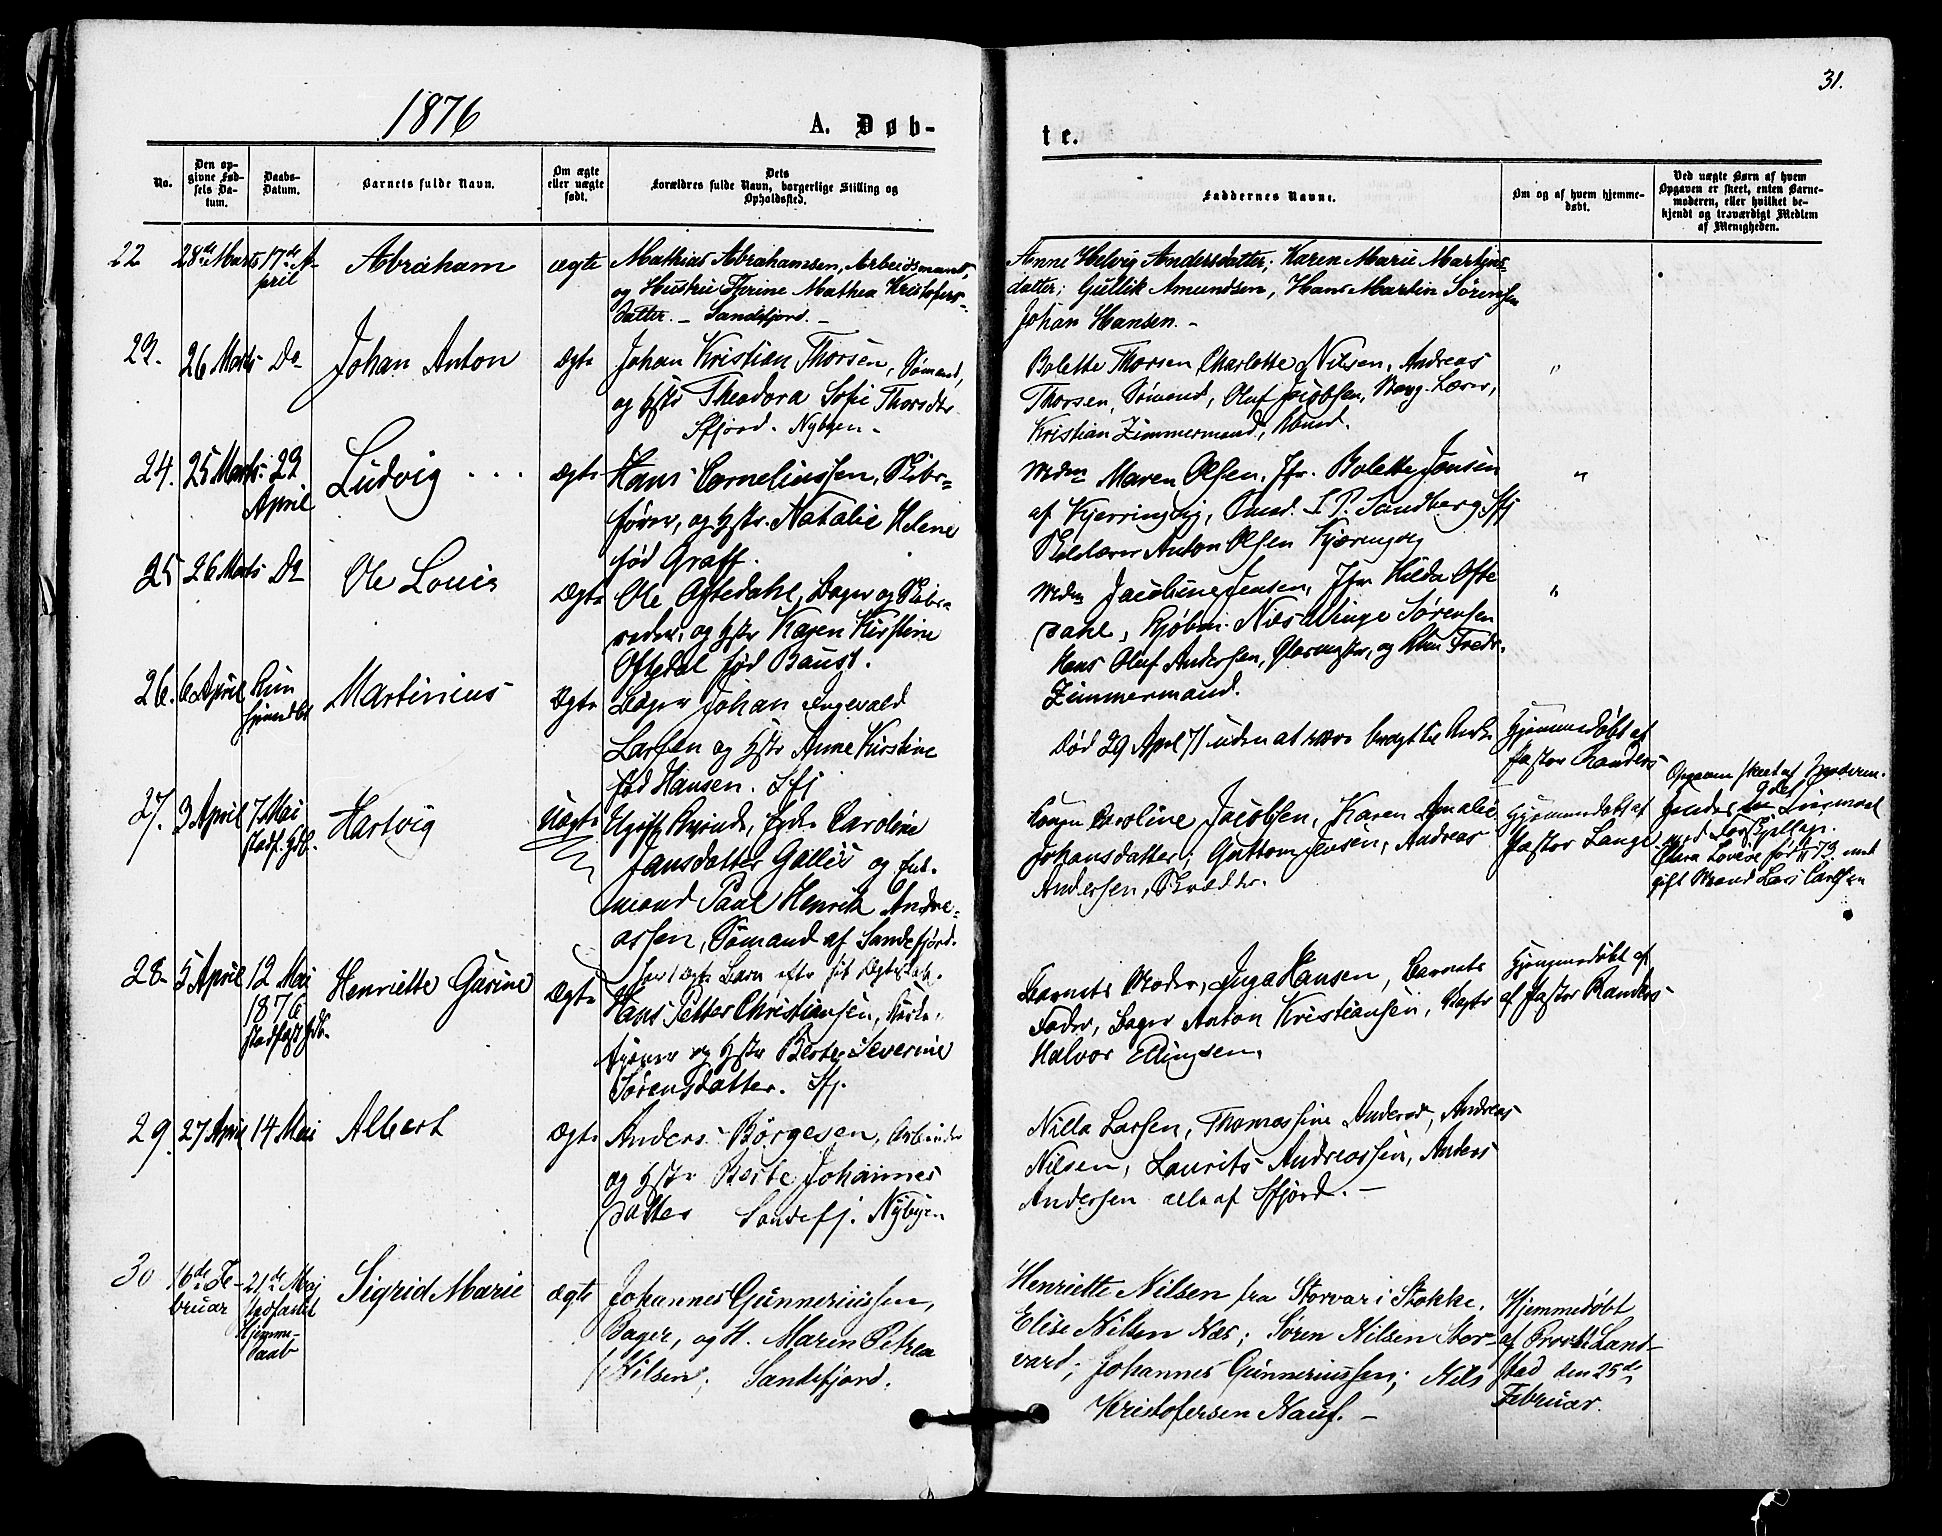 31.
1876
A. Døb-
te.
No.
Den op-
givne Fød-
sels Da-
tum.
Daabs-
Datum.
Barnets fulde Navn.
Om ægte
eller uægte
født.
Dets
Forældres fulde Navn, borgerlige Stilling og
Opholdssted.
Faddernes Navne.
Om og af hvem hjemme-
døbt.
Ved uægte Børn af hvem
Opgaven er skeet, enten Barne-
moderen, eller hvilket be-
kjendt og troværdigt Medlem
af Menigheden.
22
28de Marts
17de A-
pril
Abraham
ægte
Mathias Abrahamsen, Arbeidsmand,
og Hustrue Tjerine Mathea Kristofers-
datter. - Sandefjord. -
Anne Helvig Andersdatter; Karen Marie Martins-
datter; Gullik Amundsen, Hans Martin Sørensen
Johan Hansen. -
23.
26 Marts
Do
Johan Anton
Ægte
Johan Kristian Thorsen, Sømand,
og Hstr Theodora Sofie Thorsdtr
Sfjord. Nybyen -
Bolette Thorsen, Charlotte Nilsen, Andreas
Thorsen, Sømand, Oluf Jacobsen, Lærer,
Kristian Zimmermand,
"
24.
25 Marts
23
April
Ludvig . . .
Ægte
Hans Corneliussen, Skibs-
fører, og Hstr. Natalie Helene
fød Graff.
Maren Olsen, Jfr. Bolette Jonsen
af Kjerringvig, S. P. Sandberg, Sfj
Anton Olsen Kjæringvig
"
25
26 Marts
Do
Ole Louis
Ægte
Ole Oftedahl, Bager og Skibs-
reder, og Hstr Karen Kirstine
Oftedal fød Baust.
Jacobine Jensen, Jfr. Hilda Ofte
dahl, Kjøbm. Nis Sørensen
Hans Oluf Andersen, og Fredr.
Zimmermand.
"
26.
6 April
Kun
hjemdbt
Martinius
Ægte
Bager Johan Ingevald
Larsen og Hstr Anne Kirstine
fød Hansen. Sfj
Død 29 April 71 uden at være bragt til Kirke
Hjemmedøbt af
Pastor Randers
27.
3 April
7 Mai
stadf. Hdb.
Hartvig
Uægte
Ugift Caroline
Jansdatter Gallis og Enke-
mand Paul Henrik Andre-
assen, Sømand af Sandefjord.
Caroline Jacobsen, Karen Amalie
Johansdatter, Guttorm Jensen, Andreas
Andersen,
Hjemmedøbt af
Pastor Lange
Opgaven skeet af
med
gift Mand Lars Carlsen
28
5 April
12 Mai
1876
stadfæst Hdb.
Henriette Gusine
Ægte
Barn efter sit Ægteskab.
Hans Petter Christiansen,
og Hstr Berte Severine
Sørensdatter. Sfj.
Barnets Moder, Inga Hansen, Barnets
Fader, Bager Anton Kristiansen,
Halvor Ellingsen.
Hjemmedøbt af
af Pastor Randers
29.
27 April
14 Mai
Albert
Ægte
Anders Børgesen, Arbeider
og Hstr Berte Johannes
datter Sandefj. Nybyen
Nilla Larsen, Thomassine Anderød, Andreas
Nilsen, Laurits Andreassen, Anders
Andersen alle af Sfjord. -
30
16de Fe-
bruar
21de Maj
stadfæstet
Hjemme-
daab
Sigrid Marie
ægte
Johannes Gunneriussen,
Bager, og H. Maren Petrea
Nilsen; Sandefjord.
Henriette Nilsen fra Storvar i Stokke,
Elise Nilsen Næs; Søren Nilsen Stor-
vard; Johannes Gunneriussen; Nils
Kristofersen Nauf. -
Hjemmedøbt
af Provst Land-
stad den 25de
Februar.